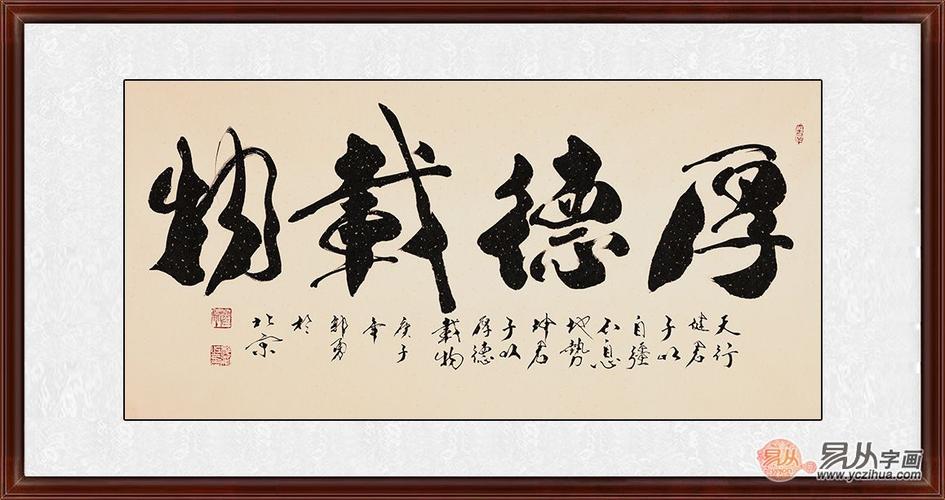 厚德載物
天行
健君
子以
自彊
不息
地勢
坤君
子以
厚德
載物
庚子
年
郭勇
於
北京
易从
易从字画
www.yczihua.com